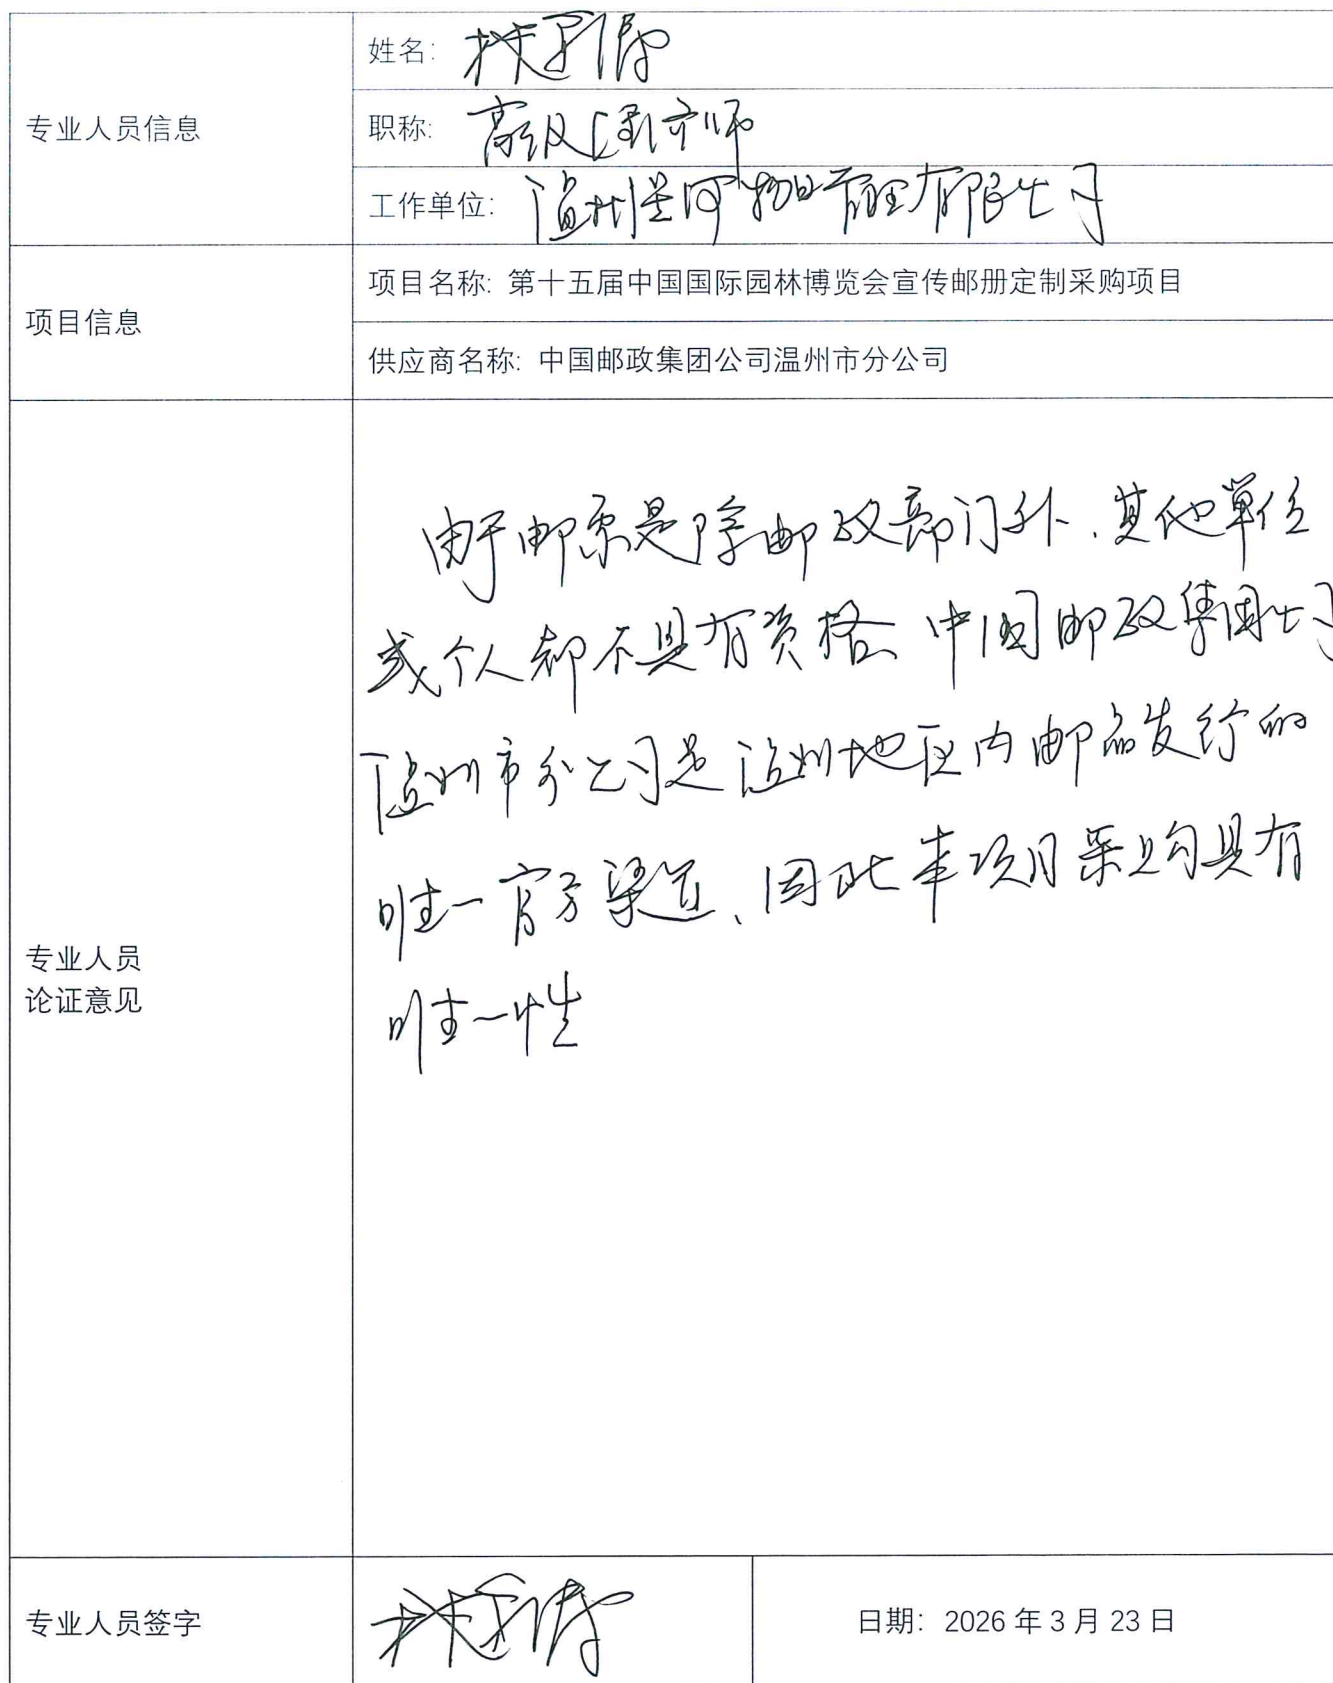 专业人员信息
姓名:
职称: 高级经济师
工作单位: 温州 物业管理有限公司
项目信息
项目名称: 第十五届中国国际园林博览会宣传邮册定制采购项目
供应商名称: 中国邮政集团公司温州市分公司
专业人员
论证意见
由于邮票是除邮政部门外、其他单位
或个人都不具有资格 中国邮政集团公司
温州市分公司是温州地区内邮品发行的
唯一官方渠道、因此本项目采购具有
唯一性
专业人员签字
日期: 2026 年 3 月 23 日